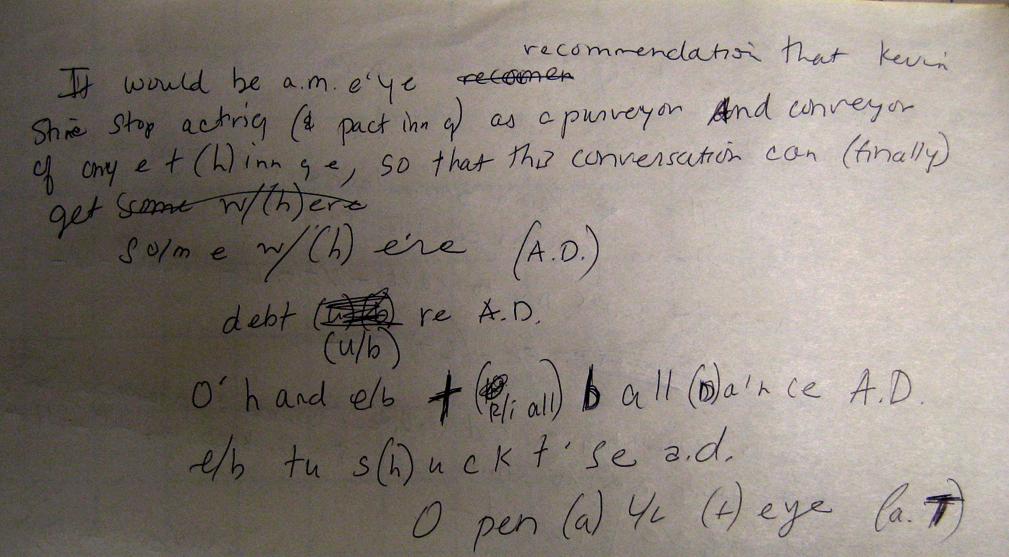 recommendation that Kevin
It would be a.m. e'ye recomen
Stop acting (& pact inn g) as a purveyor And conveyor
of any e t (h) inn g e, so that this conversation can (finally)
get some w/(h)ere
so/m e w/(h) ere (A.D.)
debt re A.D.
(u/b)
O' h and e/b t all) b all (D)a'n ce A.D.
e/b tu s(h) u c k t' se a.d.
O pen (a) (t) eye (a.T)